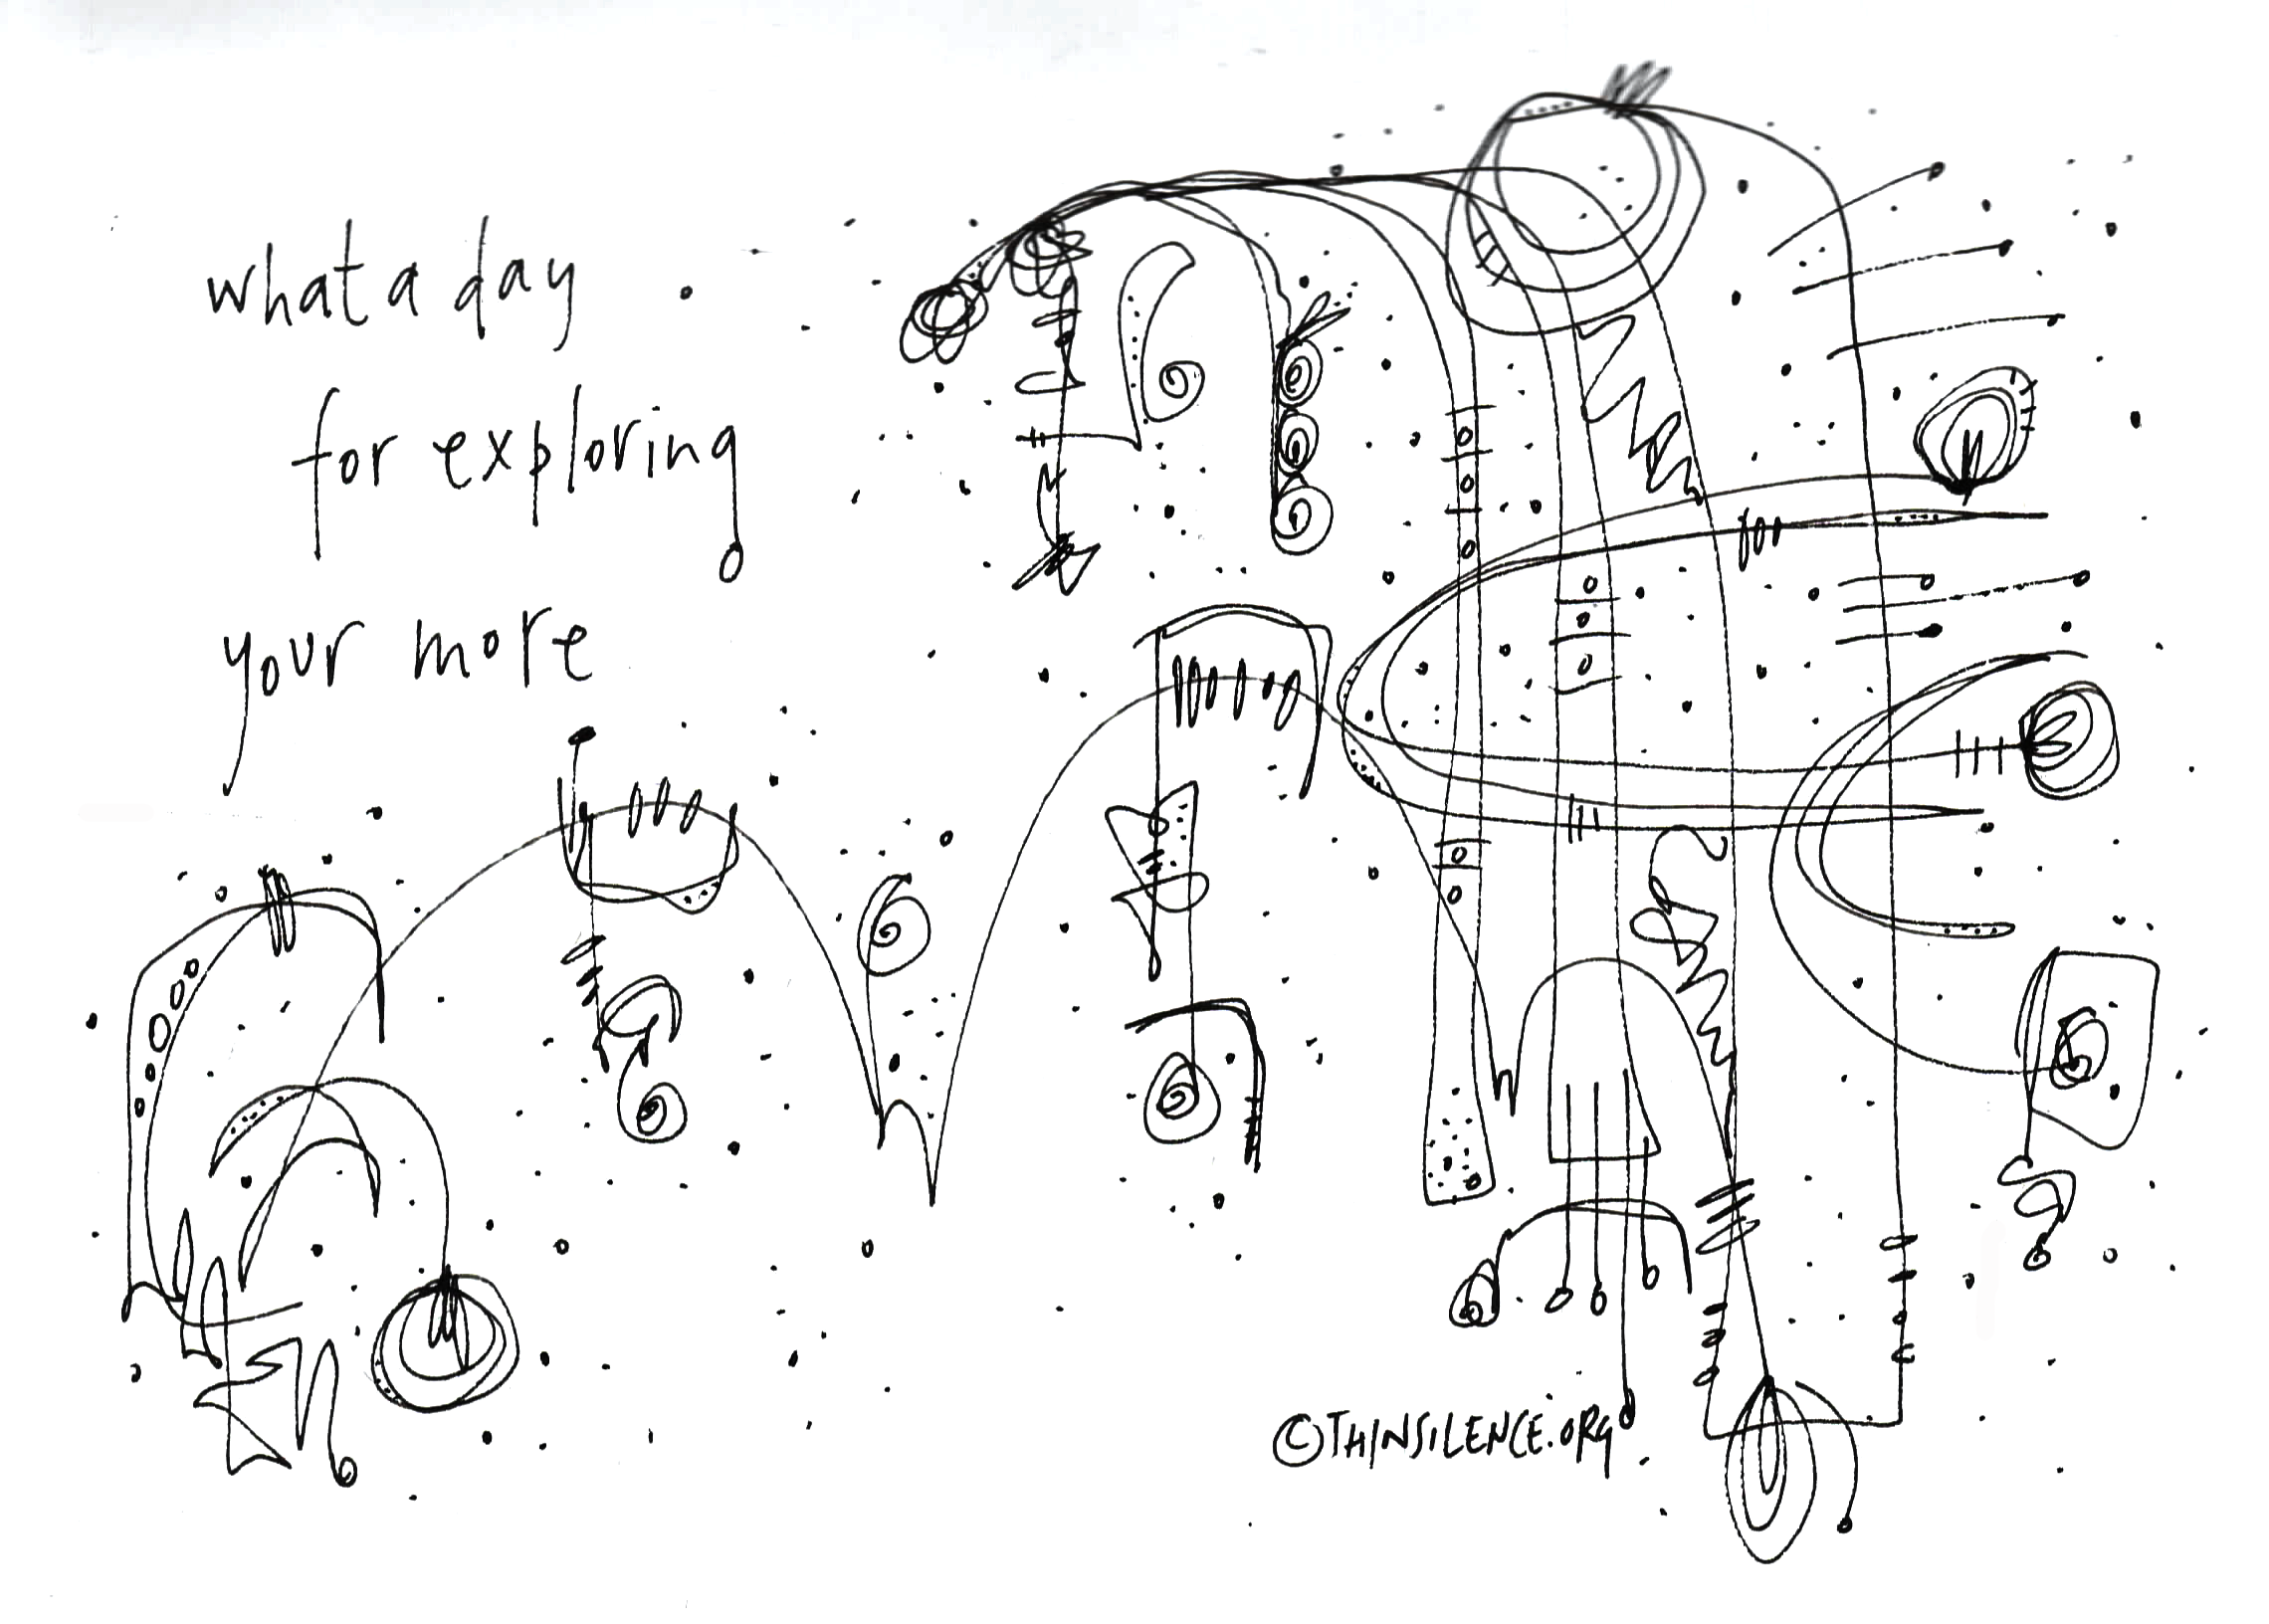 what a day
for exploring
your more
©THINSILENCE.ORG